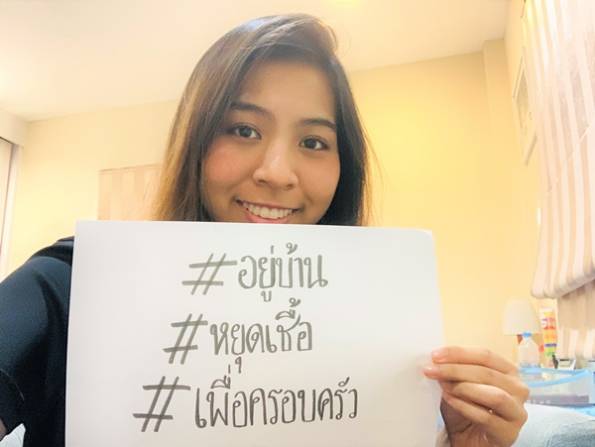 #อยู่บ้าน
#หยุดเชื้อ
#เพื่อครอบครัว